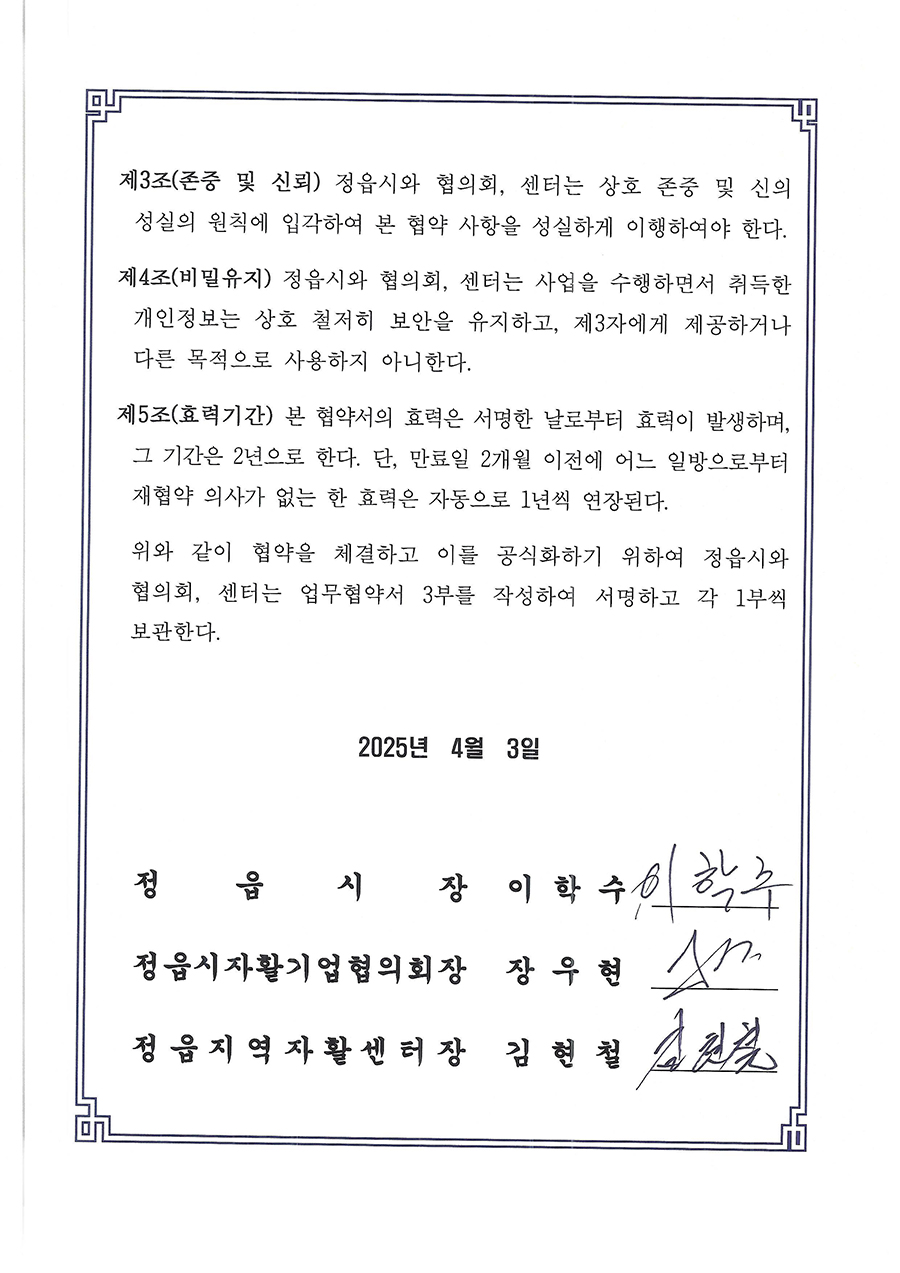 제3조(존중 및 신뢰) 정읍시와 협의회, 센터는 상호 존중 및 신의
성실의 원칙에 입각하여 본 협약 사항을 성실하게 이행하여야 한다.
제4조(비밀유지) 정읍시와 협의회, 센터는 사업을 수행하면서 취득한
개인정보는 상호 철저히 보안을 유지하고, 제3자에게 제공하거나
다른 목적으로 사용하지 아니한다.
제5조(효력기간) 본 협약서의 효력은 서명한 날로부터 효력이 발생하며,
그 기간은 2년으로 한다. 단, 만료일 2개월 이전에 어느 일방으로부터
재협약 의사가 없는 한 효력은 자동으로 1년씩 연장된다.
위와 같이 협약을 체결하고 이를 공식화하기 위하여 정읍시와
협의회, 센터는 업무협약서 3부를 작성하여 서명하고 각 1부씩
보관한다.
2025년 4월 3일
정 읍 시 장 이 학 수 이학수
정읍시자활기업협의회장 장 우 현
정읍지역자활센터장 김 현 철 김현철